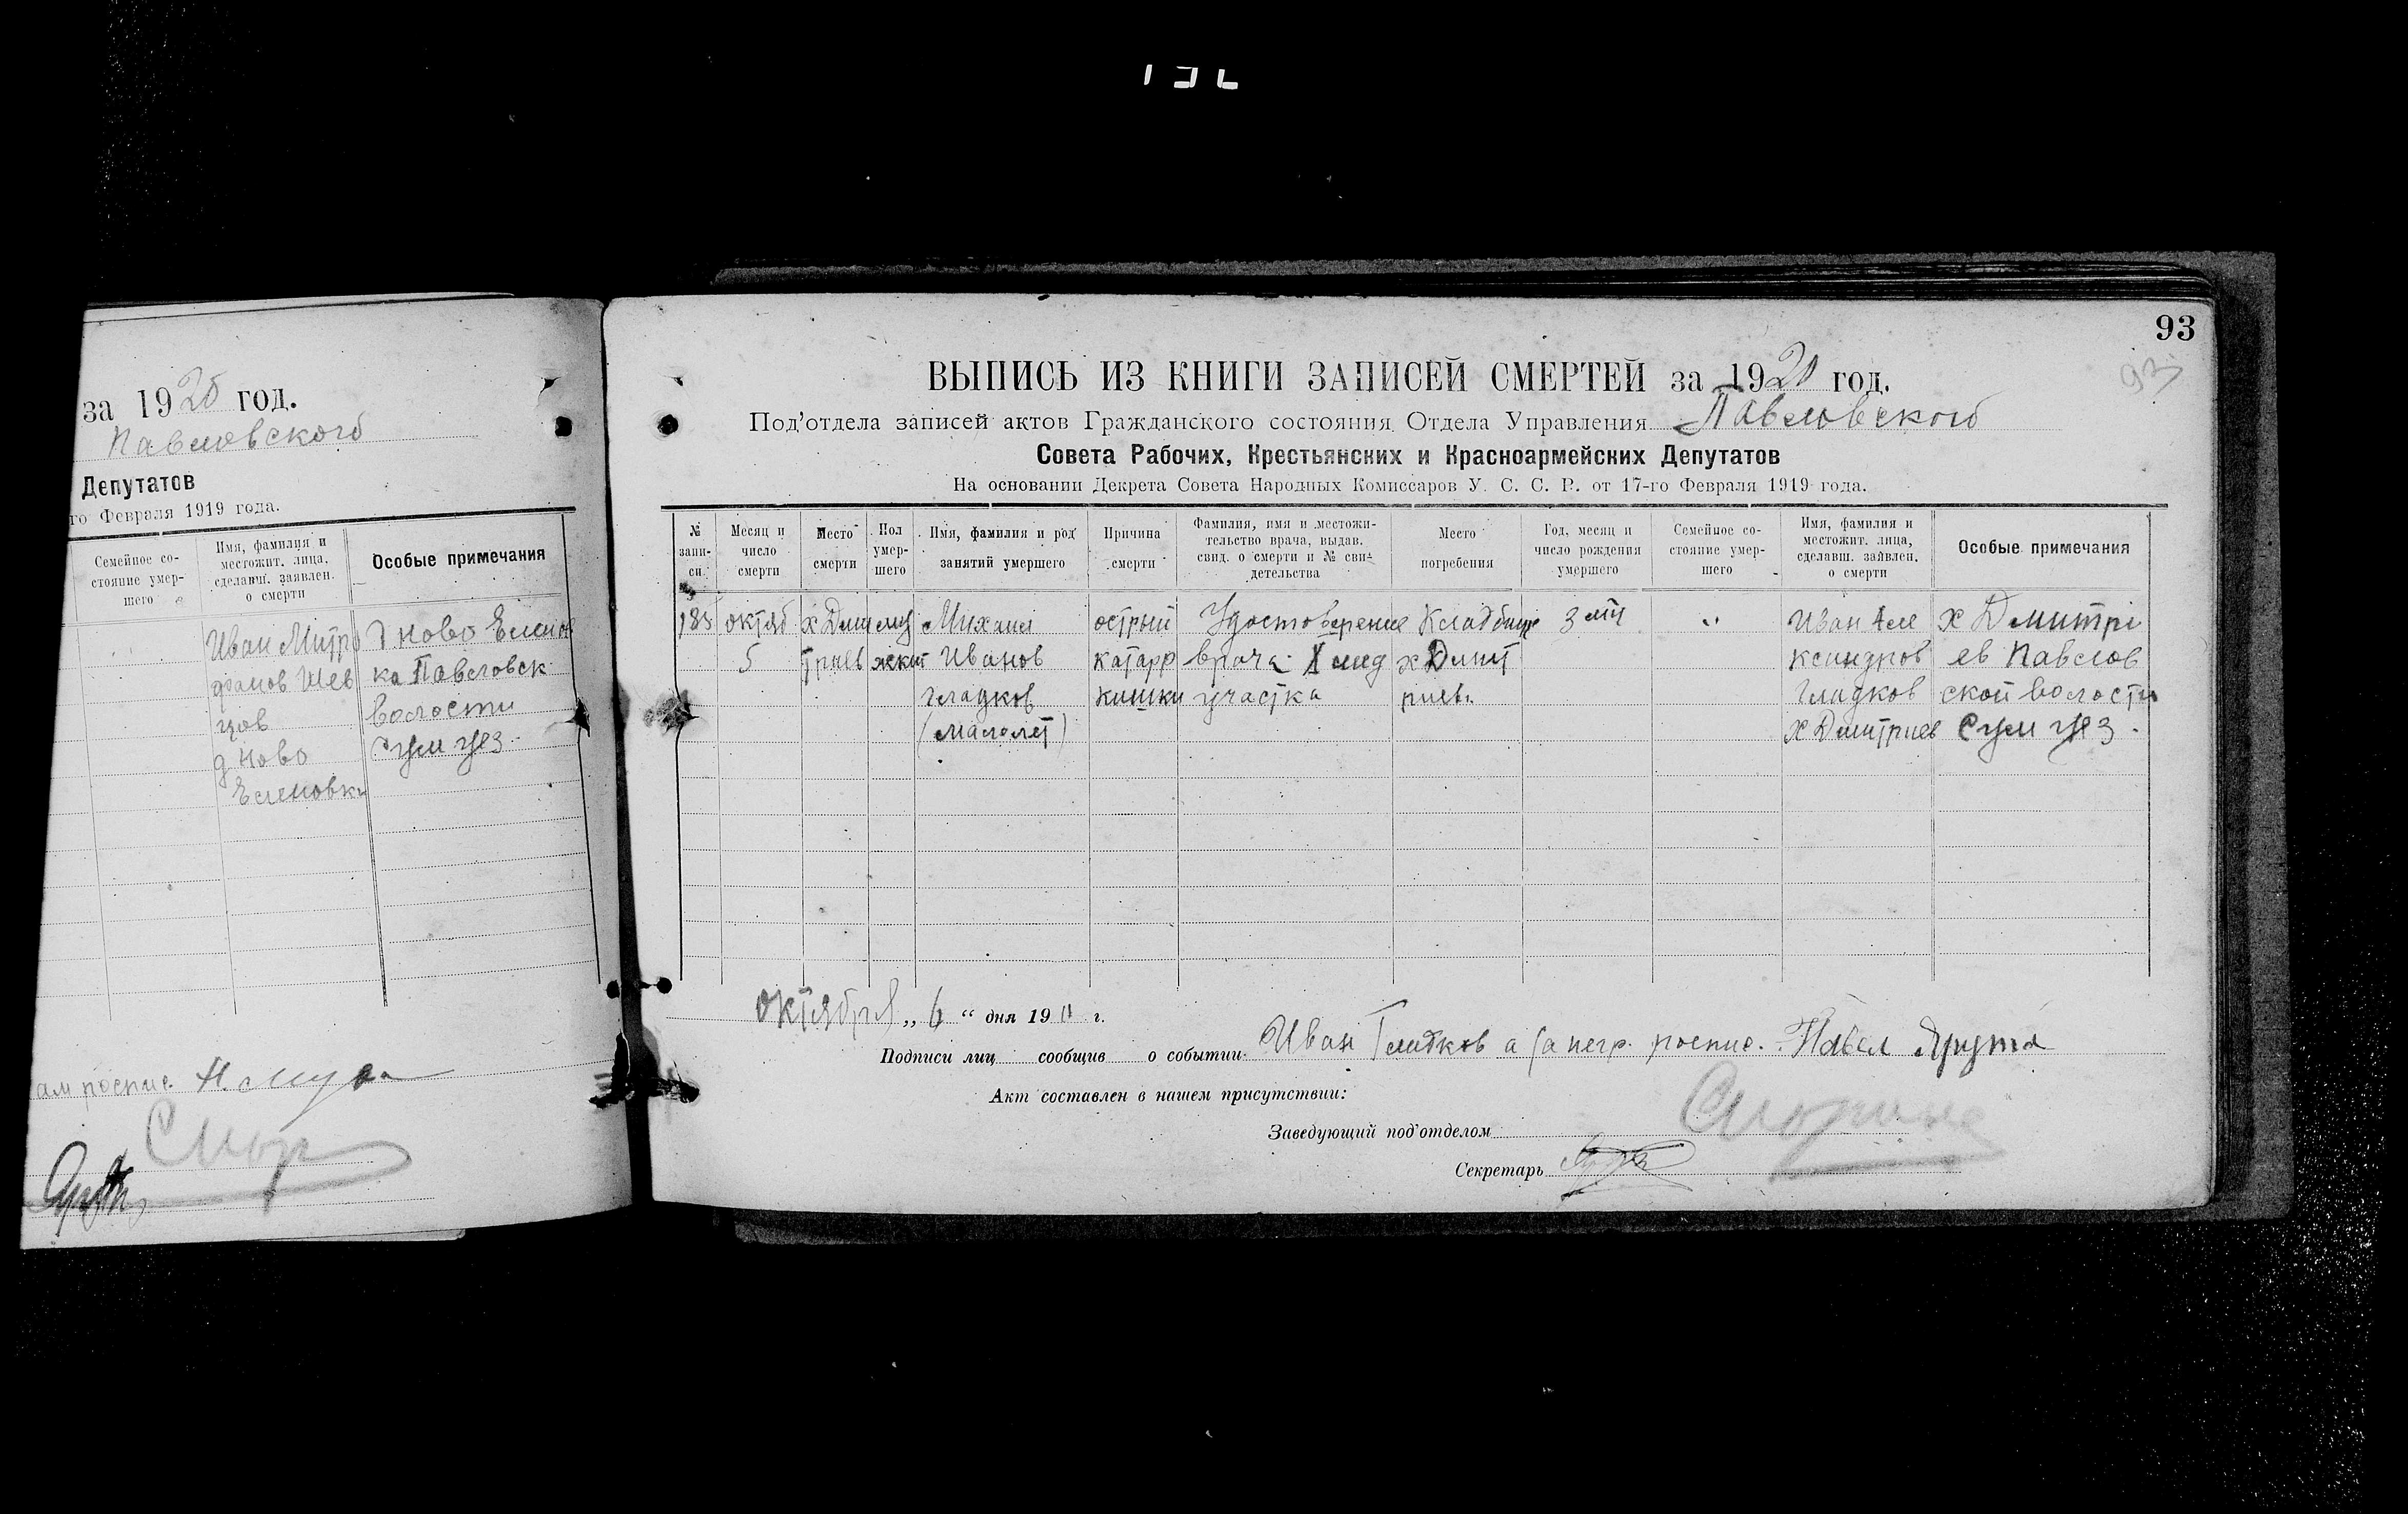 за 1920 год.
Павловского
Депутатов
го Февраля 1919 года.
Семейное со-
стояние умер-
шего
Имя, фамилия и
местожит. лица,
сделавш. заявлен.
о смерти
Особые примечания
Иван Митро
фанов Шев
цов
д Ново
Еленовки
д Ново Еленов
ка Павловск
волости
Сум уез.
93
93
ВЫПИСЬ ИЗ КНИГИ ЗАПИСЕЙ СМЕРТЕЙ за 1920 год.
Под'отдела записей актов Гражданского состояния Отдела Управления Павловского
Совета Рабочих, Крестьянских и Красноармейских Депутатов
На основании Декрета Совета Народных Комиссаров У. С. С. Р. от 17-го Февраля 1919 года.
№
запи-
си.
Месяц и
число
смерти
Место
смерти
Пол
умер-
шего
Имя, фамилия и род
занятий умершего
Причина
смерти
Фамилия, имя и местожи-
тельство врача, выдав.
свид. о смерти и № сви-
детельства
Место
погребения
Год, месяц и
число рождения
умершего
Семейное со-
стояние умер-
шего
Имя, фамилия и
местожит. лица,
сделавш. заявлен.
о смерти
Особые примечания
185
октяб
5
х Дми
триев
муж
ской
Михаил
Иванов
Гладков
(малолет)
острый
катарр
кишки
Удостоверение
врача I мед
участка
Кладбище
х Дмит
риев.
3 лет
"
Иван Але
ксандров
Гладков
х Дмитриев
х Дмитрі
ев Павлов
ской волости
Сум уез.
октября „ 6 “ дня 190 г.
Подписи лиц сообщив о событии. Иван Гладков а за негр. роспис. Павел Ярута
Акт составлен в нашем присутствии:
Заведующий под'отделом
Секретарь